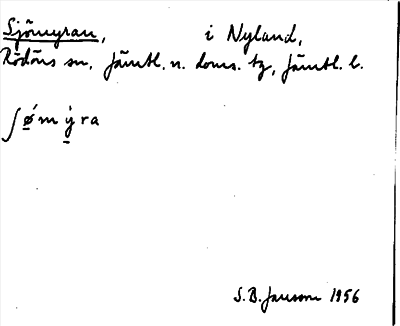 Sjömyran, i Nyland,
Rödöns sn, Jämtl. n. doms. tg, Jämtl. l.
ʃǿ̱m ý̱ra
S. B. Jansson 1956